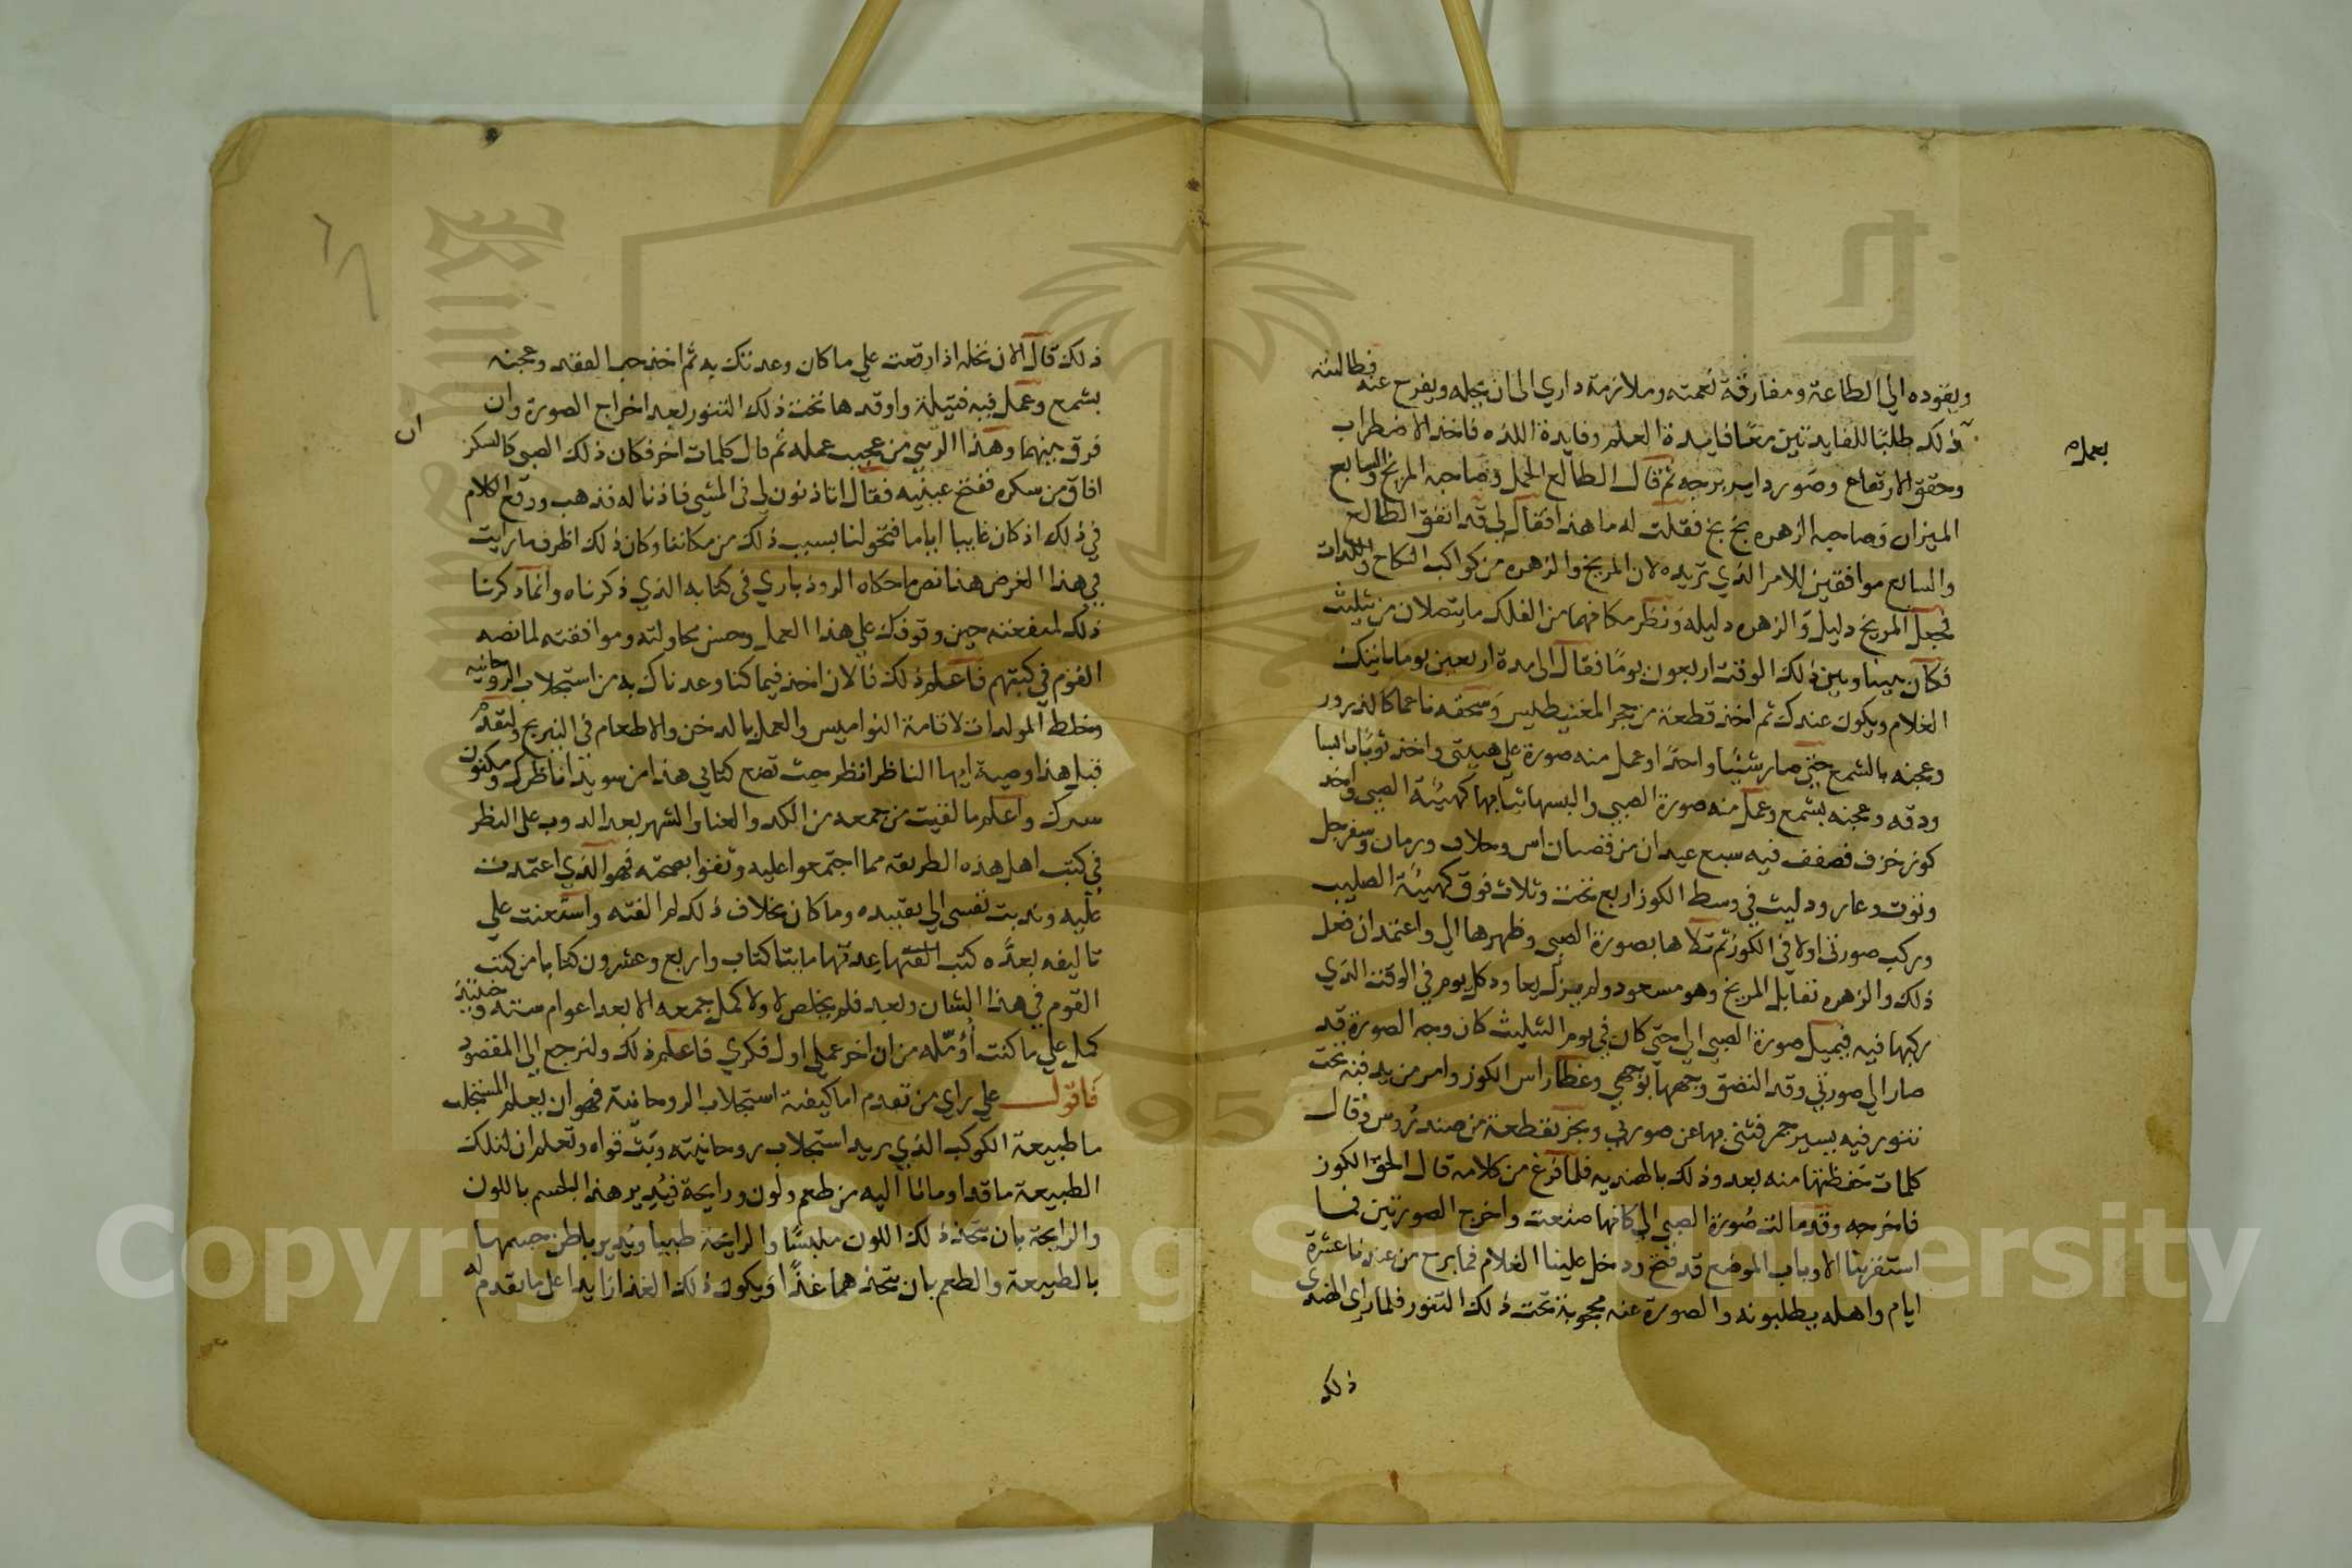 ويقوده الي الطاعة ومفارقة نعمته وملازمة داري الى ان يجله ويفرح عنه فطالبته
ذلك طلبًا للفايدتين معًا فايدة العلم وفايدة اللذه فاخذ الاضطراب
بعمله
وحقق الارتفاع وصور داير برجه ثم قال الطالع الحمل وصاحبه المريخ والسابع
الميزان وصاحبه الزهره بخ بخ فقلت له ما هذا فقال لي قد اتفق الطالع
والسابع موافقين للامر الذي تريده لان المريخ والزهره من كواكب النكاح واللذات
فجعل المريخ دليل والزهره دليله ونظر مكانهما من الفلك ما يتصلان من تثليث
فكان بيننا وبين ذلك الوقت اربعون يومًا فقال الى مدة اربعين يوما ياتيك
الغلام ويكون عندك ثم اخذ قطعة من حجر المغنيطليس وسحقه ناعما كالذرور
وعجنه بالشمع حتى صار شيئًا واحدًا وعمل منه صورة على هيئتي واخذ
ودقه وعجنه بشمع وعمل منه صورة الصبي والبسها ثيابها كهيئة الصبي واخذ
كوز خزف فصفف فيه سبع عيدان من قضبان اس وخلاف ورمان وسفرجل
وتوت وغار ودليت في وسط الكوز اربع تحت وثلاث فوق كهيئة الصليب
وركب صورتي اولا في الكوز ثم تلاها بصورة الصبي وظهرها الي واعتمد ان فعل
ذلك والزهره تقابل المريخ وهو مسعود ولم يزل يعاود كل يوم في الوقت الذي
ركبها فيه فيميل صورة الصبي الي حتي كان في يوم التثليث كان وجه الصورة قد
صار الي صورتي وقد التصق وجهها بوجهي وغطا راس الكوز وامر من يدفنه تحت
تنور فيه يسير جمر فنثى بها عن صورتي وبخر بقطعة من سندروس وقال
كلمات حفظتها منه بعد وذلك بالهنديه فلما فرغ من كلامه قال الحق الكوز
فاخرجه وقد مالت صورة الصبي الي كانها صنعت واخرج الصورتين فما
استقرتا الا وباب الموضع قد فتح ودخل علينا الغلام فما برح من عندنا عشرة
ايام واهله يطلبونه والصورة عنه محجوبة تحت ذلك التنور فلما راى الهندي
ذلك
ذلك قال الان نخله اذا رقعت علي ما كان وعدتك به ثم اخذ حب الفقد وعجنه
بشمع وعمل فيه فتيلة واوقدها تحت ذلك التنور بعد اخراج الصورة وان
فرق بينهما وهذا الرسي من عجيب عمله ثم قال كلمات اخر فكان ذلك الصبي كالسكر
ان
افاق من سكره ففتح عينيه فقال اتاذنون لي في المشي فاذنا له فذهب ووقع الكلام
في ذلك اذ كان غايبا اياما فتحولنا بسبب ذلك من مكاننا وكان ذلك اظرف ما رايت
في هذا الغرض هذا نص ما حكاه الروذباري في كتابه الذي ذكرناه وانما ذكرنا
ذلك لمنفعته حين وقوفك علي هذا العمل وحسن محاولته وموافقته لما نصه
القوم في كتبهم فاعلم ذلك فالان اخذ فيما كنا وعدناك به من استجلاب الروحانيه
وخلط المولدات لاقامة النواميس والعمل بالدخن والاطعام في النيرنج ولنقدم
قبل هذا وصية ايها الناظر انظر حيث تضع كتابي هذا من سويدا ناظرك ومكنون
سرك واعلم ما لقيت من جمعه من الكد والعنا والسهر بعد الدوب على النظر
في كتب اهل هذه الطريقه مما اجتمعوا عليه وثقوا بصحته فهو الذي اعتمدت
عليه وندبت نفسي الي تقييده وما كان بخلاف ذلك لم الفته واستعنت علي
تاليفه بعدَّه كتب الفتها عدتها مايتا كتاب واربع وعشرون كتابا من كتب
القوم في هذا الشان وبعد فلم يخلص لا ولا كمل جمعه الا بعد اعوام سته وخشية
كمل علي ما كنت أؤمّله من ان اخر عملي اول فكري فاعلم ذلك ولنرجع الي المقصود
فاقول علي راي من تقدم اما كيفية استجلاب الروحانية فهو ان يعلم المستجلب
ما طبيعة الكوكب الذي يريد استجلاب روحانيته وبثّ قواه وتعلم ان لتلك
الطبيعة ما قد اومانا اليه من طعم ولون ورايحة فيُدير هذا الجسم باللون
والرايحة بان يتخذ ذلك اللون ملبسًا والرايحة طيبا ويدير باطن جسمها
بالطبيعة والطعم بان يتخذهما غذًا ويكون ذلك الغذا زايدا على ما تقدم له